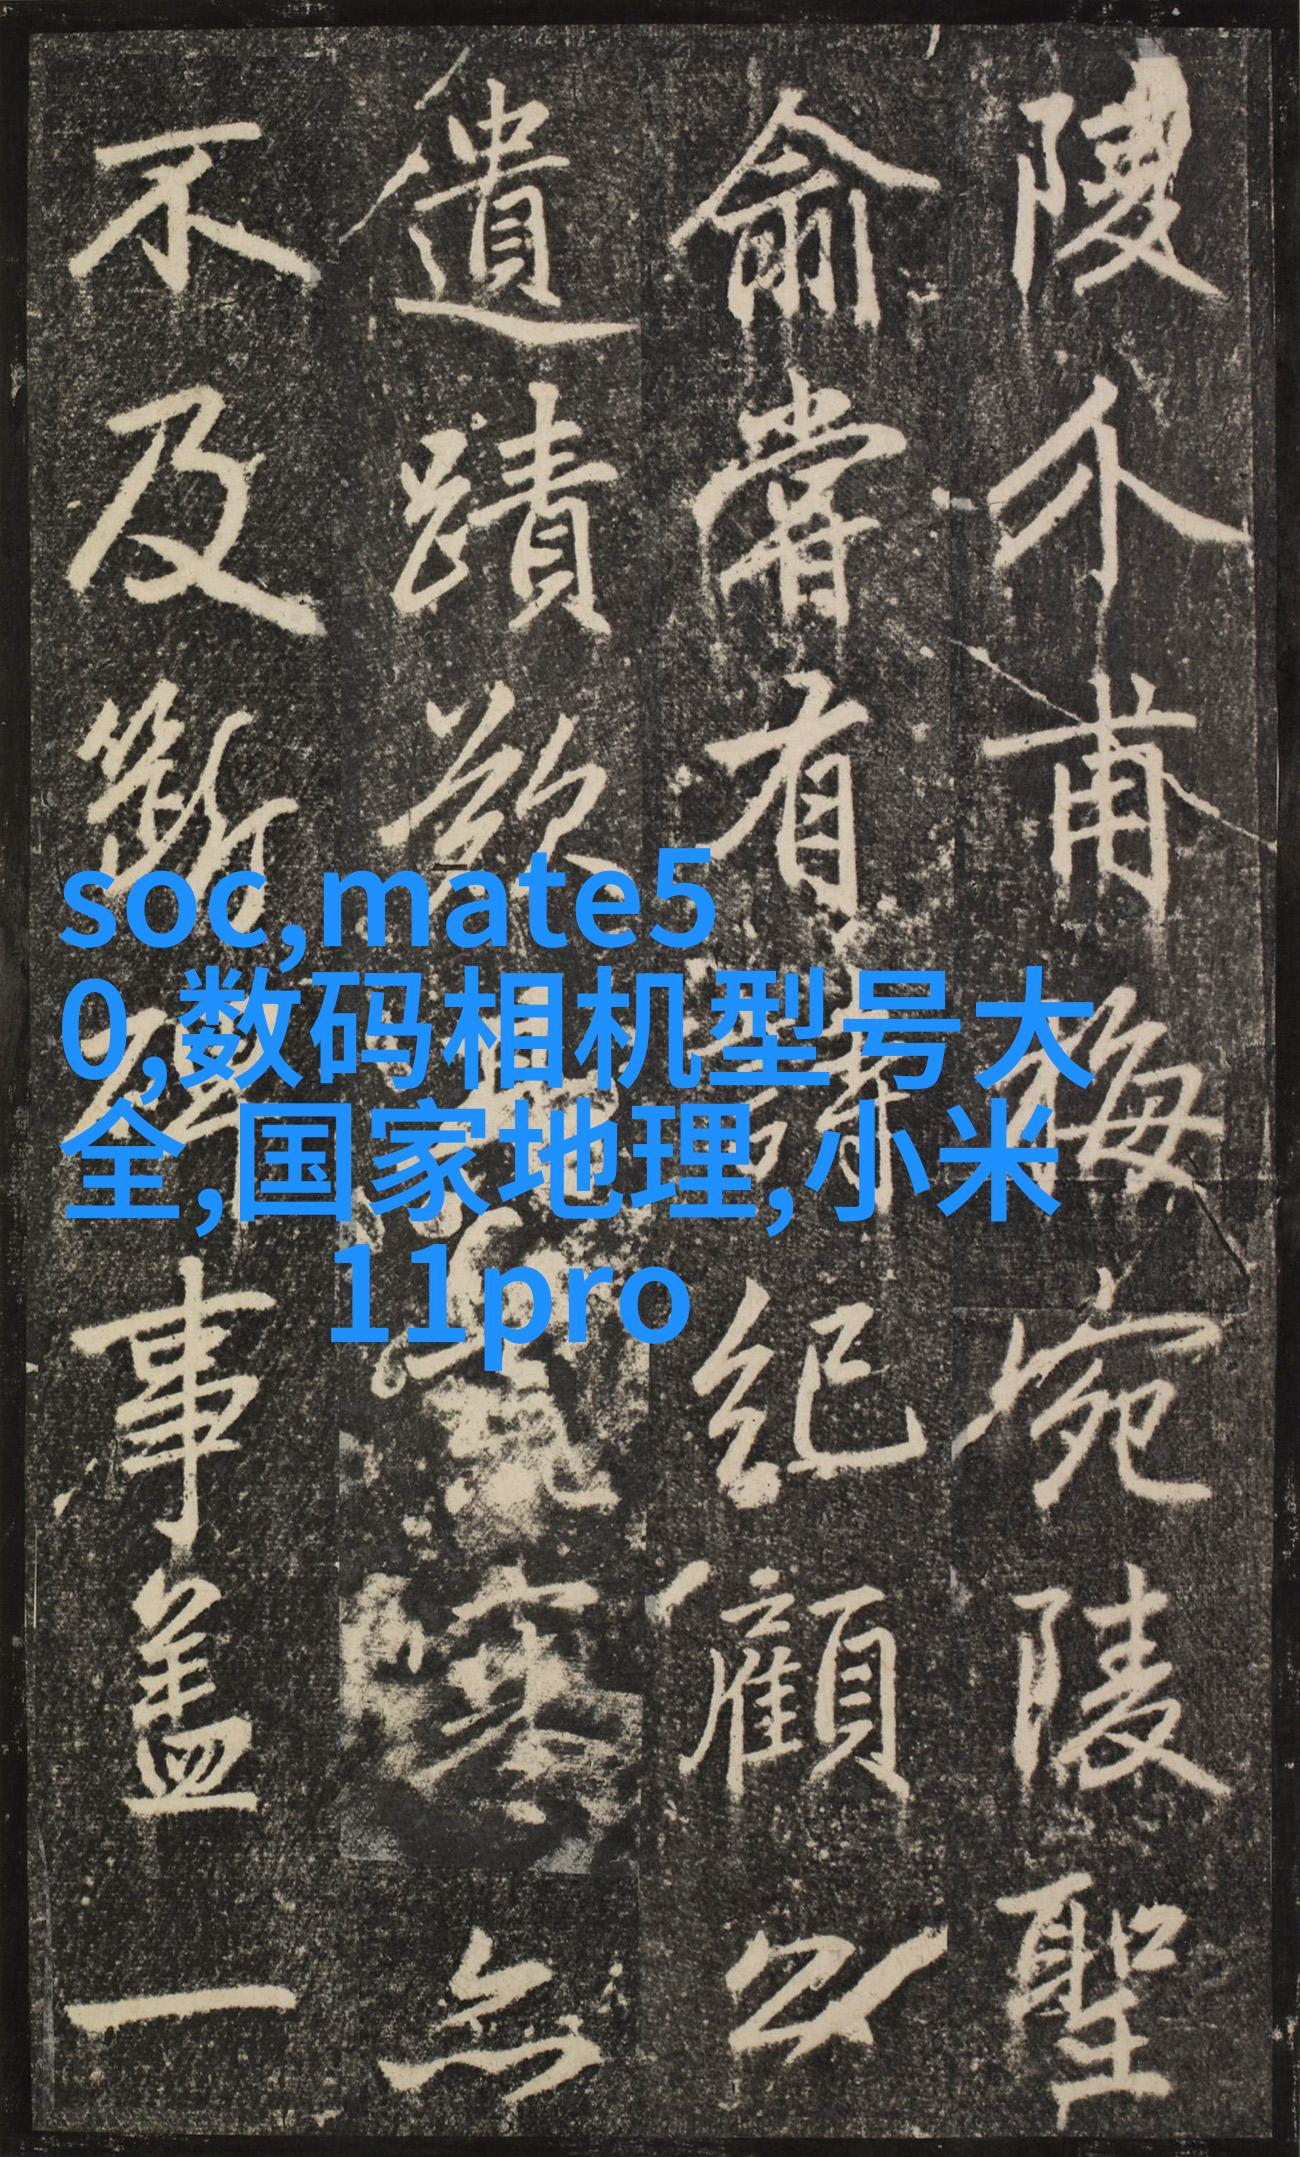 陵介甫梅宛陵聖
俞嘗有詩紀顧以
遺蹟欲無
不及斷碑事蓋一
soc,mate5
0,数码相机型号大
全,国家地理,小米
11pro